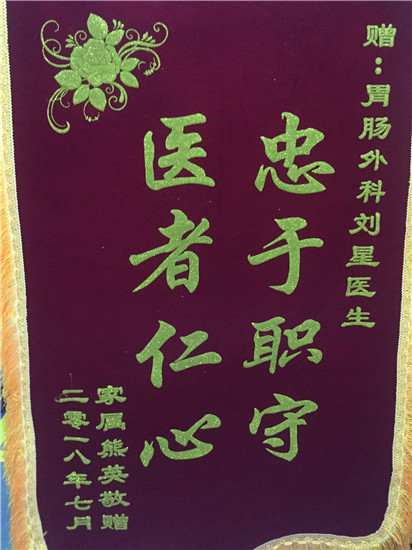 赠：胃肠外科刘星医生
忠于职守
医者仁心
家属熊英敬赠
二零一八年七月